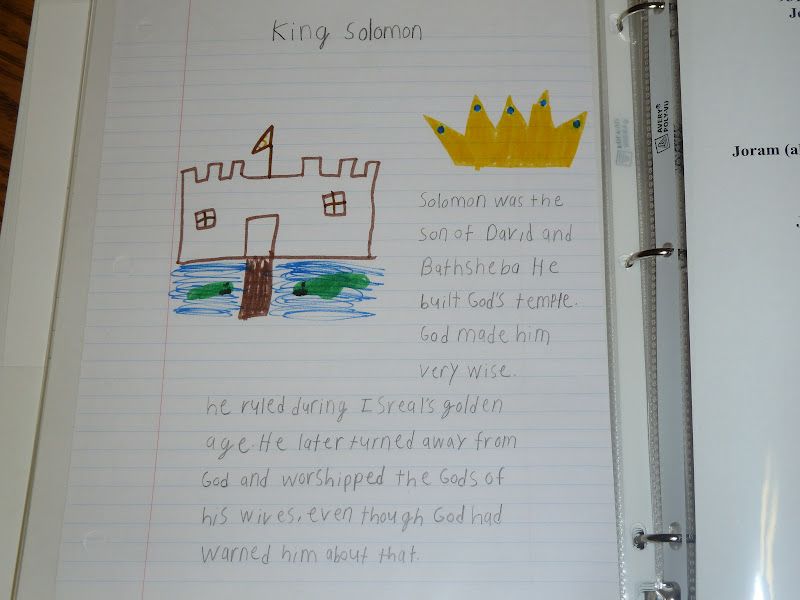 King Solomon
Solomon was the
son of David and
Bathsheba He
built God's temple.
God made him
very wise.
he ruled during ISreal's golden
age. He later turned away from
God and worshipped the Gods of
his wives, even though God had
warned him about that.
AVERY®
POLY-VU
Joram (a